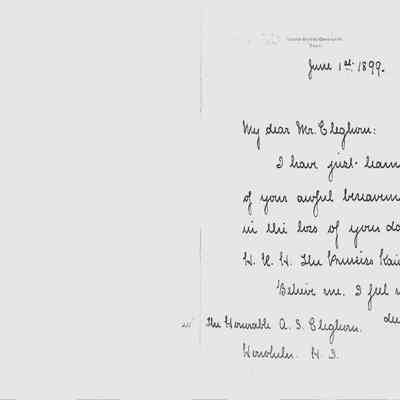 June 1st. 1899.
My dear Mr. Cleghorn:
I have just learn
of your awful bereavem
in the loss of your da
H. R. H. The Princess Kai
Believe me. I feel
The Honorable A. S. Cleghorn.
Honolulu. H. I.